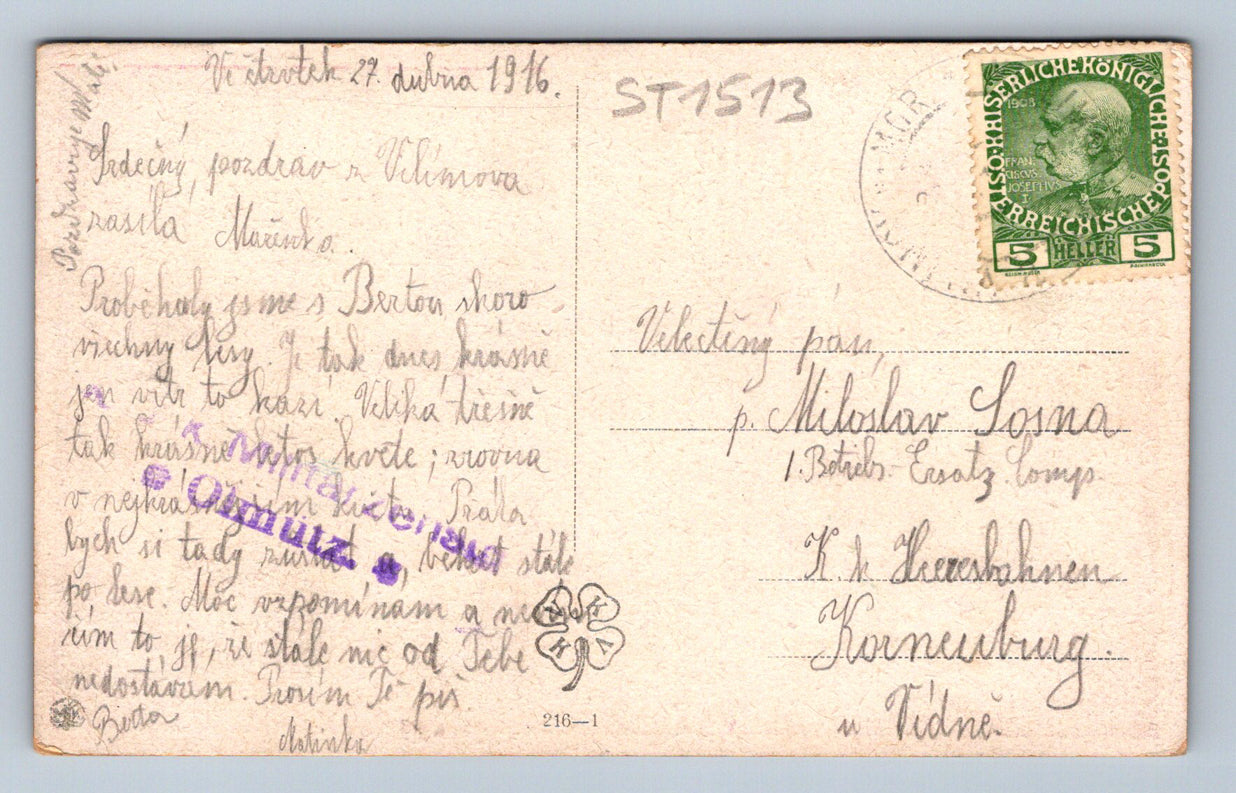 Ve čtvrtek 27. dubna 1916.
Srdečný pozdrav z Vilímova
zasílá Mařenka.
Proběhaly jsme s Bertou skoro
všechny lesy. Je tak dnes krásně
jen vítr to kazí. Veliká třešně
tak krásně letos kvete; zrovna
v nejkrásnějším květu. Přála
bych si tady zůstat a běhat stále
po lese. Moc vzpomínám a
čím to je, že stále nic od Tebe
nedostávám. Prosím Tě piš.
Berta
Matinka
Pozdravuje
ST1513
K. Militärzensur
Olmütz
KAISERLICHEKÖNIGLICHE
ÖSTERREICHISCHEPOST
1908
FRAN
CISCVS
JOSEPHVS
I
5 HELLER 5
Velectěný pán,
p. Miloslav Sosna
1. Betriebs-Ersatz Comp.
K. k. Heeresbahnen
Korneuburg.
u Vídně.
216—1